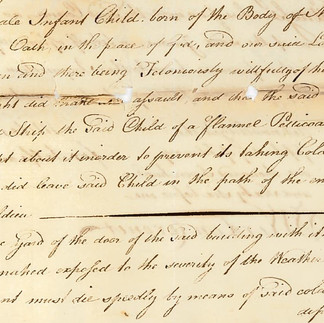 ale Infant Child, born of the Body of
Oath, in the peace of God, and our said L
n and there being Feloniously willfully of h
ght did make an assault and tha the said
e Strip the said Child of a Flannel Petticoa
t about it inorder to prevent its taking Cola
did leave said Child in the path of the
e Yard of the door of the said building with it
mained exposed to the severity of the Weather
nt must die speedily by means of said col